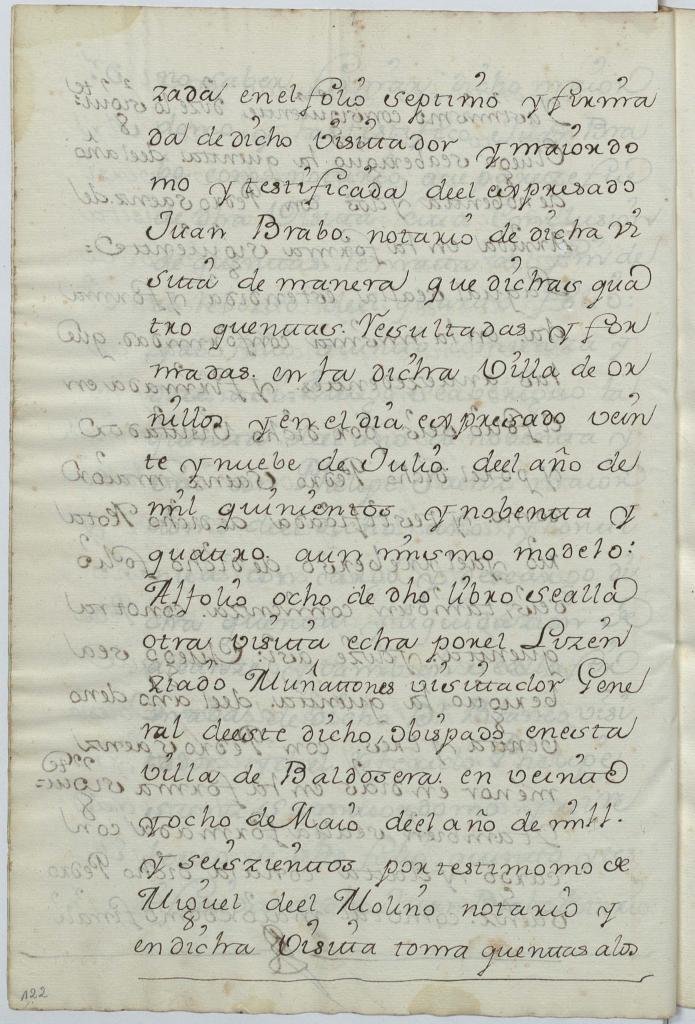 zada en el folio septimo y firma
da de dicho Visitador y maiordo
mo y testificada deel expresado
Juan Brabo notario de dicha vi
sitta de manera que dichas qua
tro quenttas. Resultadas y for
madas. en la dicha Villa de or
nillos y en el dia expresado vein
te y nuebe de Julio. deel año de
mil quinientos y nobentta y
quattro. aun mismo modelo:
Al folio ocho de dho libro sealla
otra visitta echa por el Lizen
ziado Muñattones visittador Gene
ral deeste dicho, obispado en esta
villa de Baldosera. en veintte
y ocho de Maio deel año de mill.
y seiszienttos por testimomo de
Miguel deel Molino notario y
en dicha Visitta toma quenttas a los
122